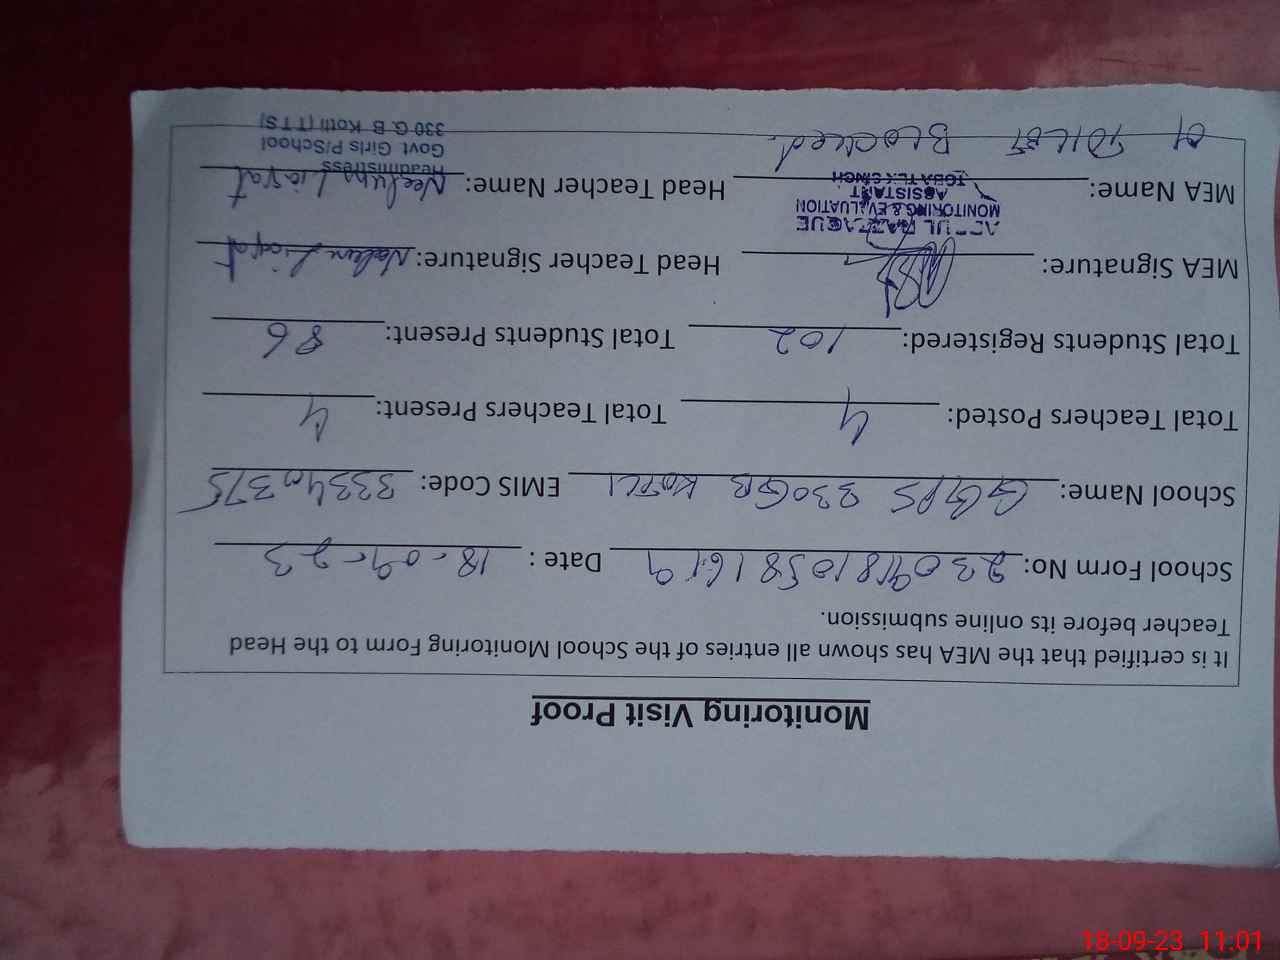 Monitoring Visit Proof
It is certified that the MEA has shown all entries of the School Monitoring Form to the Head
Teacher before its online submission.
School Form No: Date : 18-09-23
School Name: GGPS 330GB KOTLI EMIS Code:
Total Teachers Posted: 4 Total Teachers Present: 4
Total Students Registered: 102 Total Students Present: 86
MEA Signature: Head Teacher Signature:
MONITORING & EVALUATION
ASSISTANT
TOBA TEK SINGH
MEA Name: Head Teacher Name: Liaqat
Headmistress
Govt. Girls P/School
330 G.B Kotli (T T S)
01 TOILET Blocked.
18-09-23 11:01